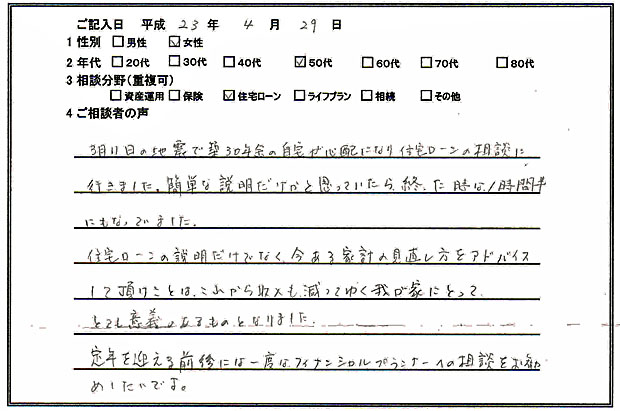 ご記入日 平成 23 年 4 月 29 日
1 性別 □男性 ☑女性
2 年代 □20代 □30代 □40代 ☑50代 □60代 □70代 □80代
3 相談分野(重複可)
□資産運用 □保険 ☑住宅ローン □ライフプラン □相続 □その他
4 ご相談者の声
3月11日の地震で築30年余の自宅が心配になり住宅ローンの相談に
行きました。簡単な説明だけかと思っていたら、終った時は1時間半
にもなっていました。
住宅ローンの説明だけでなく、今ある家計の見直し方をアドバイス
して頂けことは、これから収入も減ってゆく我が家にとって、
とても意義のあるものとなりました。
定年を迎える前後には一度は、ファイナンシャルプランナーへの相談をお勧
めしたいです。